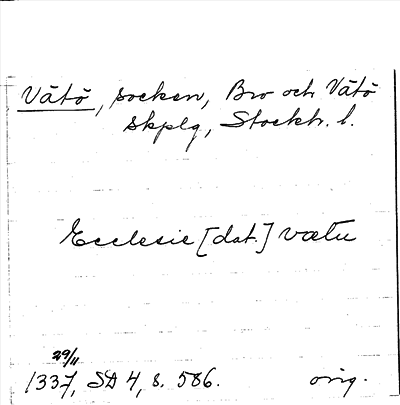 Vätö, socken, Bro och Vätö
skplg, Stockh. l.
Ecclesie [dat.] vætu
29/11
1337, SD 4, s. 586. orig.